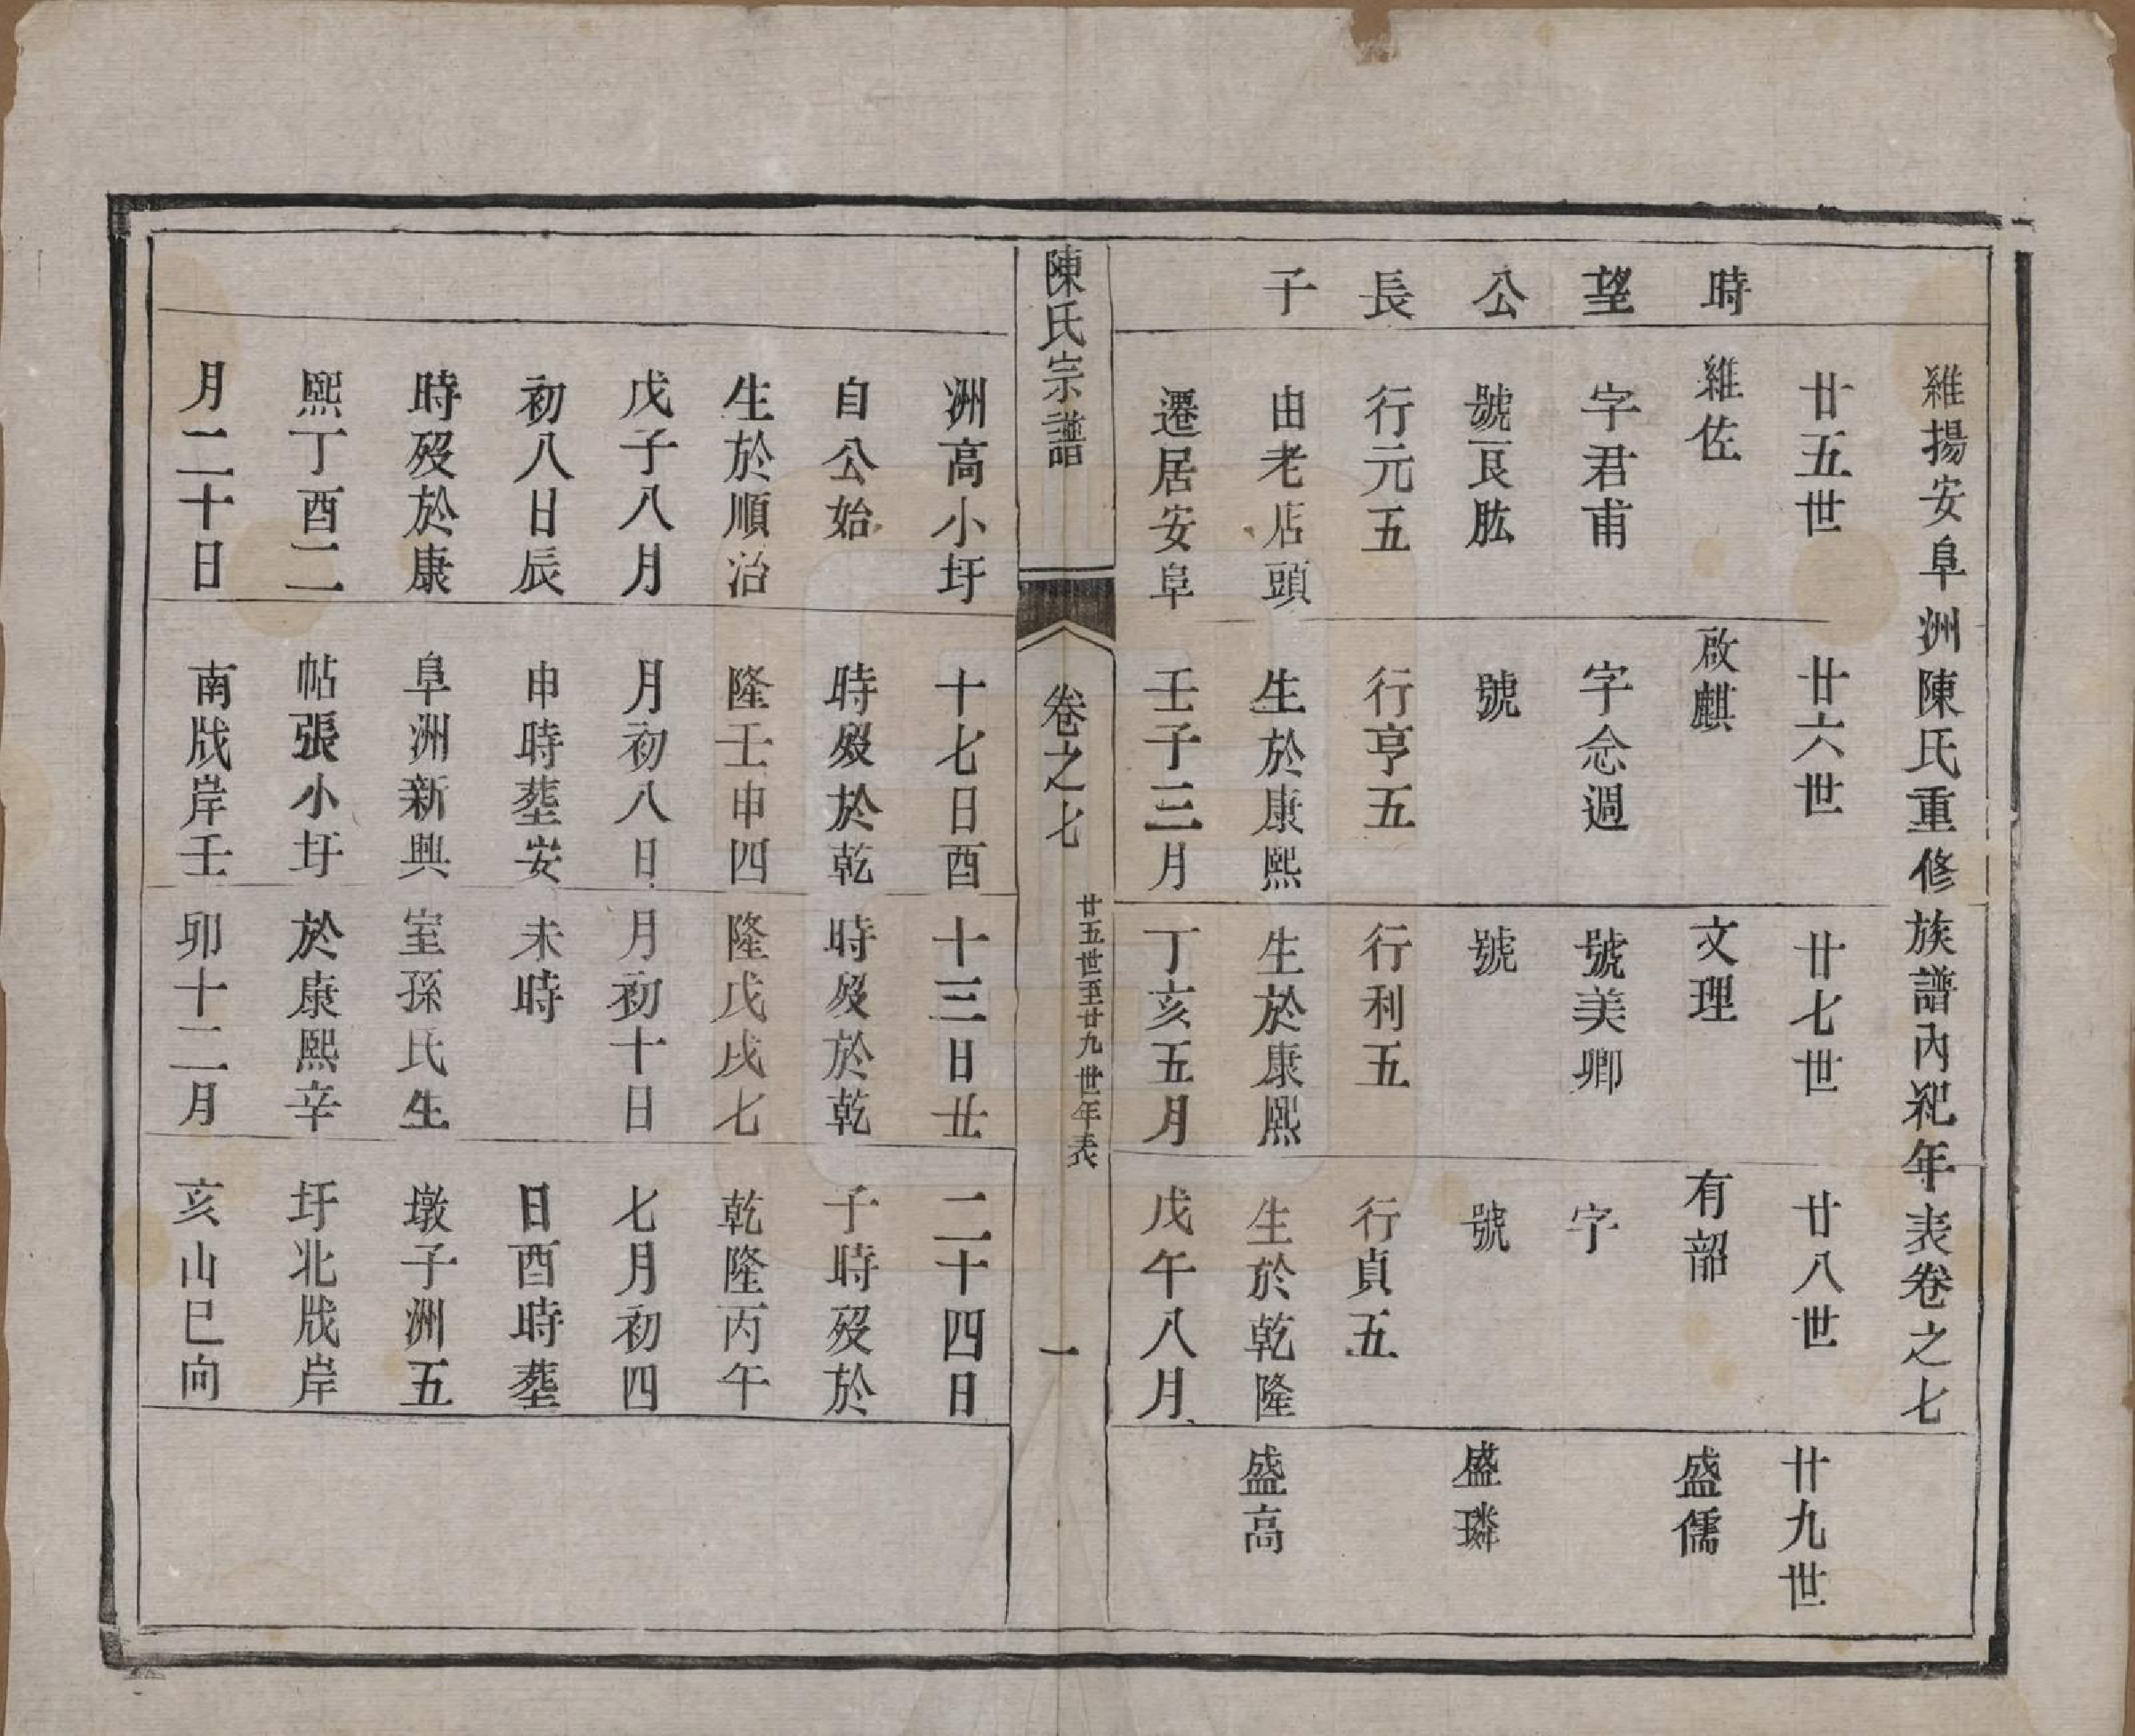 維揚安阜洲陳氏重修族譜內紀年表卷之七
時望公長子
廿五世
維佐
字君甫
號良肱
行元五
由老店頭
遷居安阜
洲高小圩
自公始
生於順治
戊子八月
初八日辰
時歿於康
熙丁酉二
月二十日
廿六世
啟麒
字念週
號
行亨五
生於康熙
壬子三月
十七日酉
時歿於乾
隆壬申四
月初八日
申時塟安
阜洲新興
帖張小圩
南戙岸壬
廿七世
文理
號美卿
號
行利五
生於康熙
丁亥五月
十三日丑
時歿於乾
隆戊戌七
月初十日
未時
室孫氏生
於康熙辛
卯十二月
廿八世
有韶
字
號
行貞五
生於乾隆
戊午八月
二十四日
子時歿於
乾隆丙午
七月初四
日酉時塟
墩子洲五
圩北戙岸
亥山巳向
廿九世
盛儒
盛璘
盛高
陳氏宗譜
卷之七
廿五世至廿九世年表
一